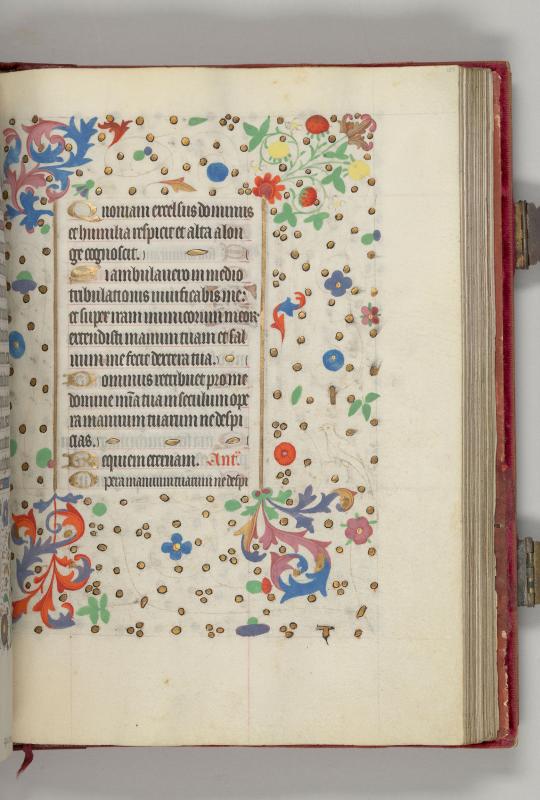 Quoniam excelsus dominus
et humilia respicit et alta a lon
ge cognoscit.
Si ambulavero in medio
tribulationis vivificabis me:
et super iram inimicorum meor
extendisti manum tuam et sal
vum me fecit dextera tua.
Dominus retribuet pro me
domine mia tua in seculum ope
ra manuum tuarum ne despi
cias.
Requiem eternam. Ant.
Opera manuum tuarum ne despi